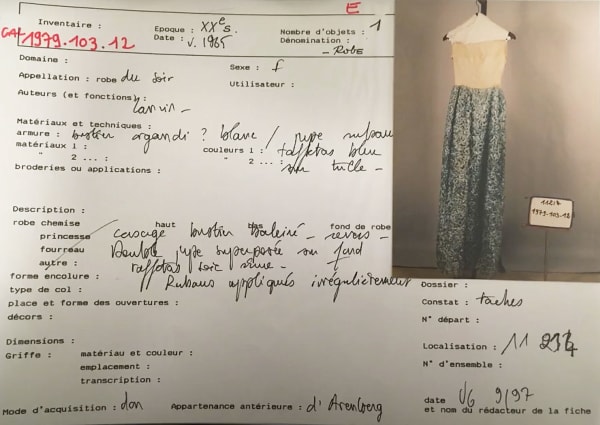 E
Inventaire :
GAL 1979.103.12
Epoque : XXe s.
Date : v. 1965
Nombre d'objets : 1
Dénomination :
- ROBE
Domaine :
Sexe : f
Appellation : robe du soir
Utilisateur :
Auteurs (et fonctions) :
Lanvin -
Matériaux et techniques :
armure : bustier organdi ? blanc / jupe ruban
matériaux 1 : couleurs 1 : taffetas bleu
" 2 ... : " 2 ... : sur tulle -
broderies ou applications :
Description :
robe chemise haut bas fond de robe
princesse corsage bustier baleiné - revers -
fourreau Double jupe superposée sur fond
autre : taffetas soie
forme encolure : Rubans appliqués irrégulièrement
type de col :
place et forme des ouvertures :
décors :
Dimensions :
Griffe : matériau et couleur :
emplacement :
transcription :
Mode d'acquisition : don
Appartenance antérieure : d'Arenberg
11234
1979.103.12
Dossier :
Constat : taches
N° départ :
Localisation : 11 234
N° d'ensemble :
date VG 9/97
et nom du rédacteur de la fiche